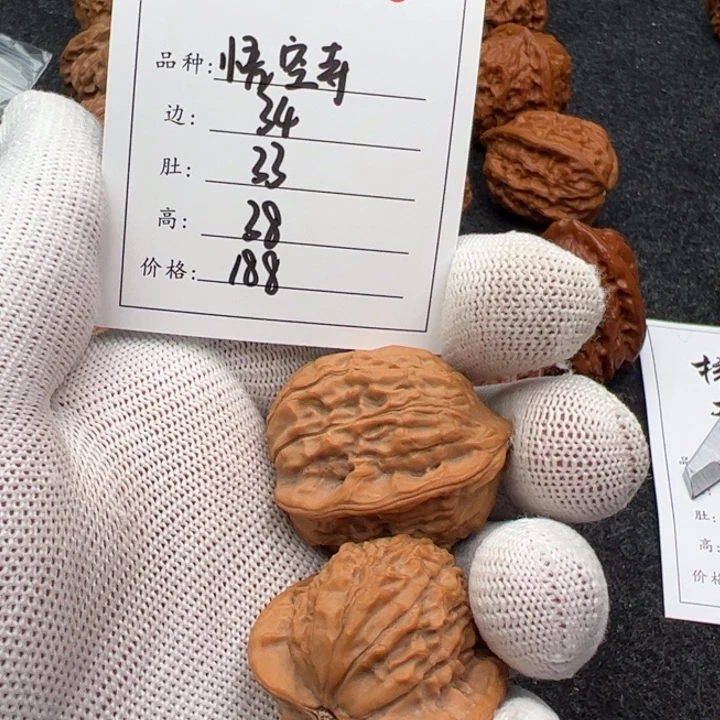 品种:悟空寿
边:34
肚:33
高:38
价格:188
肚:
高:
价格